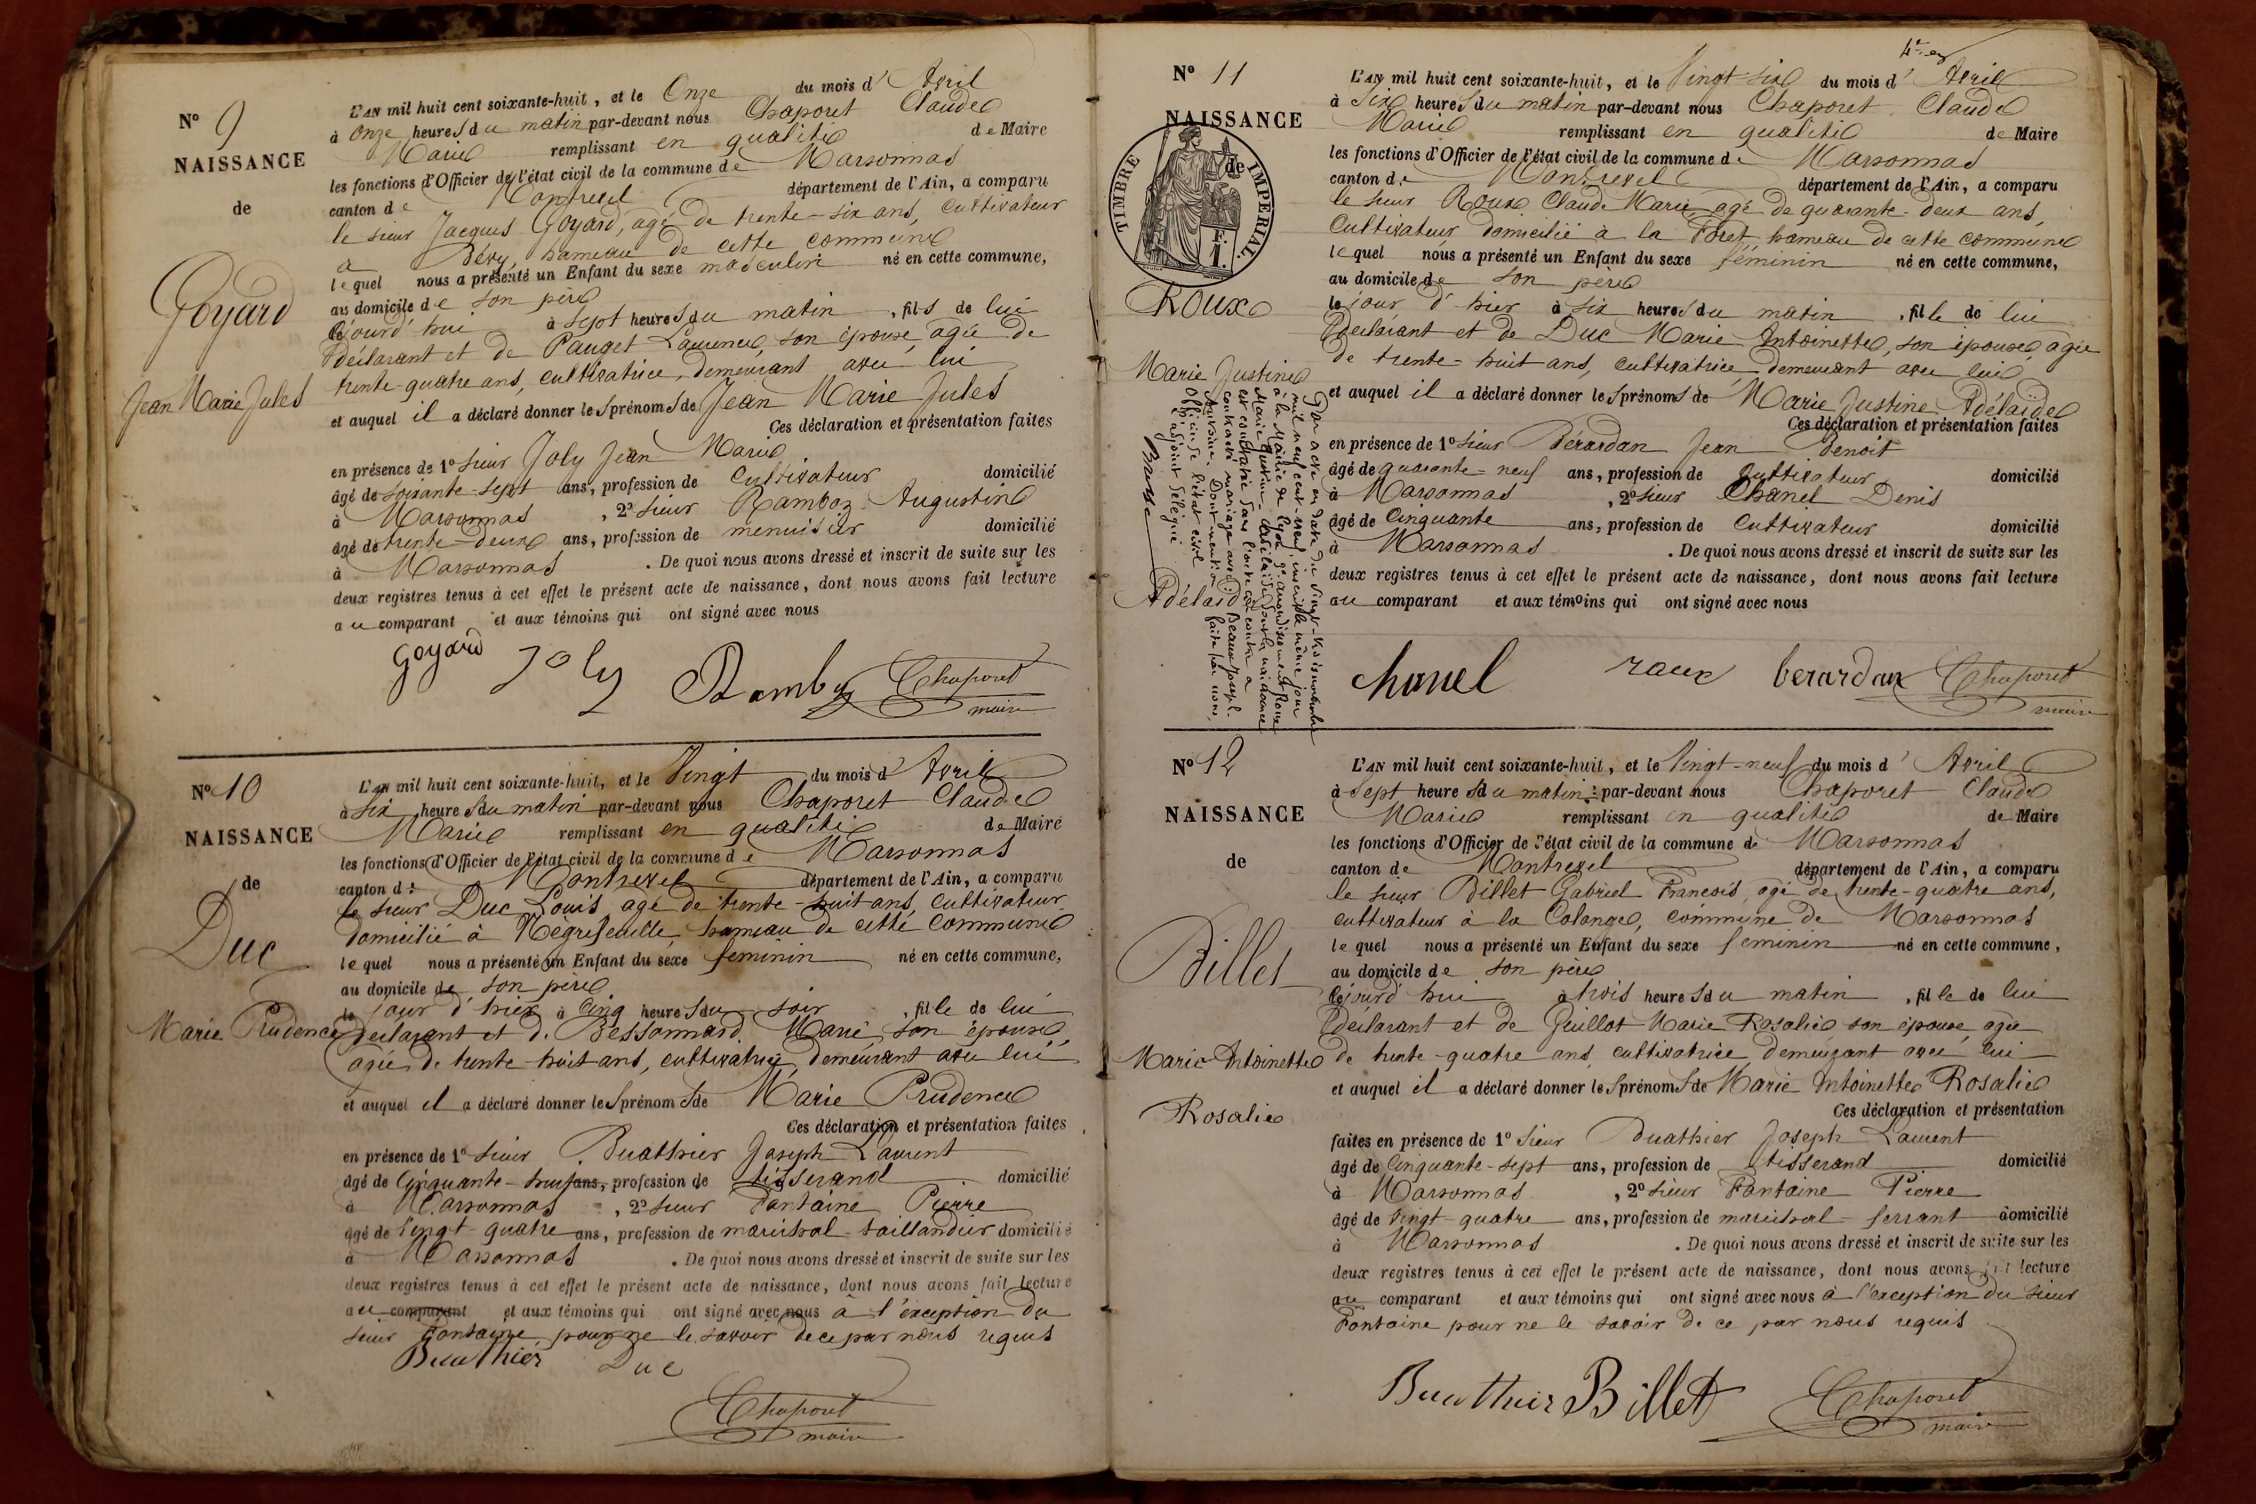 N° 9
NAISSANCE
de
Goyard
Jean Marie Jules
L'AN mil huit cent soixante-huit, et le Onze du mois d' Avril
à onze heures du matin par-devant nous Chaporet Claude
Marie remplissant en qualité de Maire
les fonctions d'Officier de l'état civil de la commune de Marsonnas
canton de Montrevel département de l'Ain, a comparu
le sieur Jacques Goyard, agé de trente-six ans, cultivateur
à Bévy, hameau de cette commune
lequel nous a présenté un Enfant du sexe masculin né en cette commune,
au domicile de son père
cejourd'hui à sept heures du matin, fils de lui
déclarant et de Pauget Laurence, son épouse, agée de
trente-quatre ans, cultivatrice, demeurant avec lui
et auquel il a déclaré donner les prénoms de Jean Marie Jules
Ces déclaration et présentation faites
en présence de 1° sieur Joly Jean Marie
âgé de soixante-sept ans, profession de cultivateur domicilié
à Marsonnas, 2° sieur Ramboz Augustin
âgé de trente-deux ans, profession de menuisier domicilié
à Marsonnas. De quoi nous avons dressé et inscrit de suite sur les
deux registres tenus à cet effet le présent acte de naissance, dont nous avons fait lecture
au comparant et aux témoins qui ont signé avec nous
Goyard Joly Ramboz Chaporet
maire
N° 10
NAISSANCE
de
Duc
Marie Prudence
L'AN mil huit cent soixante-huit, et le Vingt du mois d' Avril
à six heures du matin par-devant nous Chaporet Claude
Marie remplissant en qualité de Maire
les fonctions d'Officier de l'état civil de la commune de Marsonnas
canton de Montrevel département de l'Ain, a comparu
le sieur Duc Louis agé de trente-huit ans, cultivateur
domicilié à Nègrefeuille, hameau de cette commune
lequel nous a présenté un Enfant du sexe féminin né en cette commune,
au domicile de son père
le jour d'hier à cinq heures du soir, fille de lui
déclarant et de Bessonnard Marie son épouse,
agée de trente-huit ans, cultivatrice, demeurant avec lui
et auquel il a déclaré donner les prénoms de Marie Prudence
Ces déclaration et présentation faites
en présence de 1° sieur Buathier Joseph Laurent
âgé de cinquante-huit ans, profession de tisserand domicilié
à Marsonnas, 2° sieur Fontaine Pierre
âgé de vingt-quatre ans, profession de maréchal-taillandier domicilié
à Marsonnas. De quoi nous avons dressé et inscrit de suite sur les
deux registres tenus à cet effet le présent acte de naissance, dont nous avons fait lecture
au comparant et aux témoins qui ont signé avec nous à l'exception du
sieur Fontaine pour ne le savoir de ce par nous requis
Buathier Duc
Chaporet
maire
N° 11
NAISSANCE
de
TIMBRE IMPERIAL
F.
1.
Roux
Marie Justine
Adélaïde
Par acte en date du vingt-trois
mil neuf cent-neuf, inscrit le même jour
à la Mairie de Lyon, arrondissement
Marie Justine Adélaïde dont la naissance
est constatée dans l'acte ci-contre a
contracté mariage avec Beaux Joseph
Antoine. Dont mention faite par nous,
officier de l'état civil
L'adjoint délégué
L'AN mil huit cent soixante-huit, et le Vingt-six du mois d' Avril
à Six heures du matin par-devant nous Chaporet Claude
Marie remplissant en qualité de Maire
les fonctions d'Officier de l'état civil de la commune de Marsonnas
canton de Montrevel département de l'Ain, a comparu
le sieur Roux Claude Marie, agé de quarante-deux ans,
cultivateur domicilié à la Forêt hameau de cette commune
lequel nous a présenté un Enfant du sexe féminin né en cette commune,
au domicile de son père
le jour d'hier à six heures du matin, fille de lui
déclarant et de Duc Marie Antoinette, son épouse, agée
de trente-huit ans, cultivatrice demeurant avec lui
et auquel il a déclaré donner les prénoms de Marie Justine Adélaïde
Ces déclaration et présentation faites
en présence de 1° sieur Bérardan Jean Benoit
âgé de quarante-neuf ans, profession de cultivateur domicilié
à Marsonnas, 2° sieur Chanel Denis
âgé de Cinquante ans, profession de cultivateur domicilié
à Marsonnas. De quoi nous avons dressé et inscrit de suite sur les
deux registres tenus à cet effet le présent acte de naissance, dont nous avons fait lecture
au comparant et aux témoins qui ont signé avec nous
Chanel roux berardan Chaporet
maire
N° 12
NAISSANCE
de
Billet
Marie Antoinette
Rosalie
L'AN mil huit cent soixante-huit, et le Vingt-neuf du mois d' Avril
à sept heures du matin par-devant nous Chaporet Claude
Marie remplissant en qualité de Maire
les fonctions d'Officier de l'état civil de la commune de Marsonnas
canton de Montrevel département de l'Ain, a comparu
le sieur Billet Gabriel François, agé de trente-quatre ans,
cultivateur à la Colonge, commune de Marsonnas
lequel nous a présenté un Enfant du sexe féminin né en cette commune,
au domicile de son père
cejourd'hui à trois heures du matin, fille de lui
déclarant et de Guillot Marie Rosalie son épouse agée
de trente-quatre ans cultivatrice demeurant avec lui
et auquel il a déclaré donner les prénoms de Marie Antoinette Rosalie
Ces déclaration et présentation
faites en présence de 1° sieur Buathier Joseph Laurent
âgé de Cinquante-sept ans, profession de tisserand domicilié
à Marsonnas, 2° sieur Fontaine Pierre
âgé de vingt-quatre ans, profession de maréchal-ferrant domicilié
à Marsonnas. De quoi nous avons dressé et inscrit de suite sur les
deux registres tenus à cet effet le présent acte de naissance, dont nous avons fait lecture
au comparant et aux témoins qui ont signé avec nous à l'exception du sieur
Fontaine pour ne le savoir de ce par nous requis
Buathier Billet Chaporet
maire